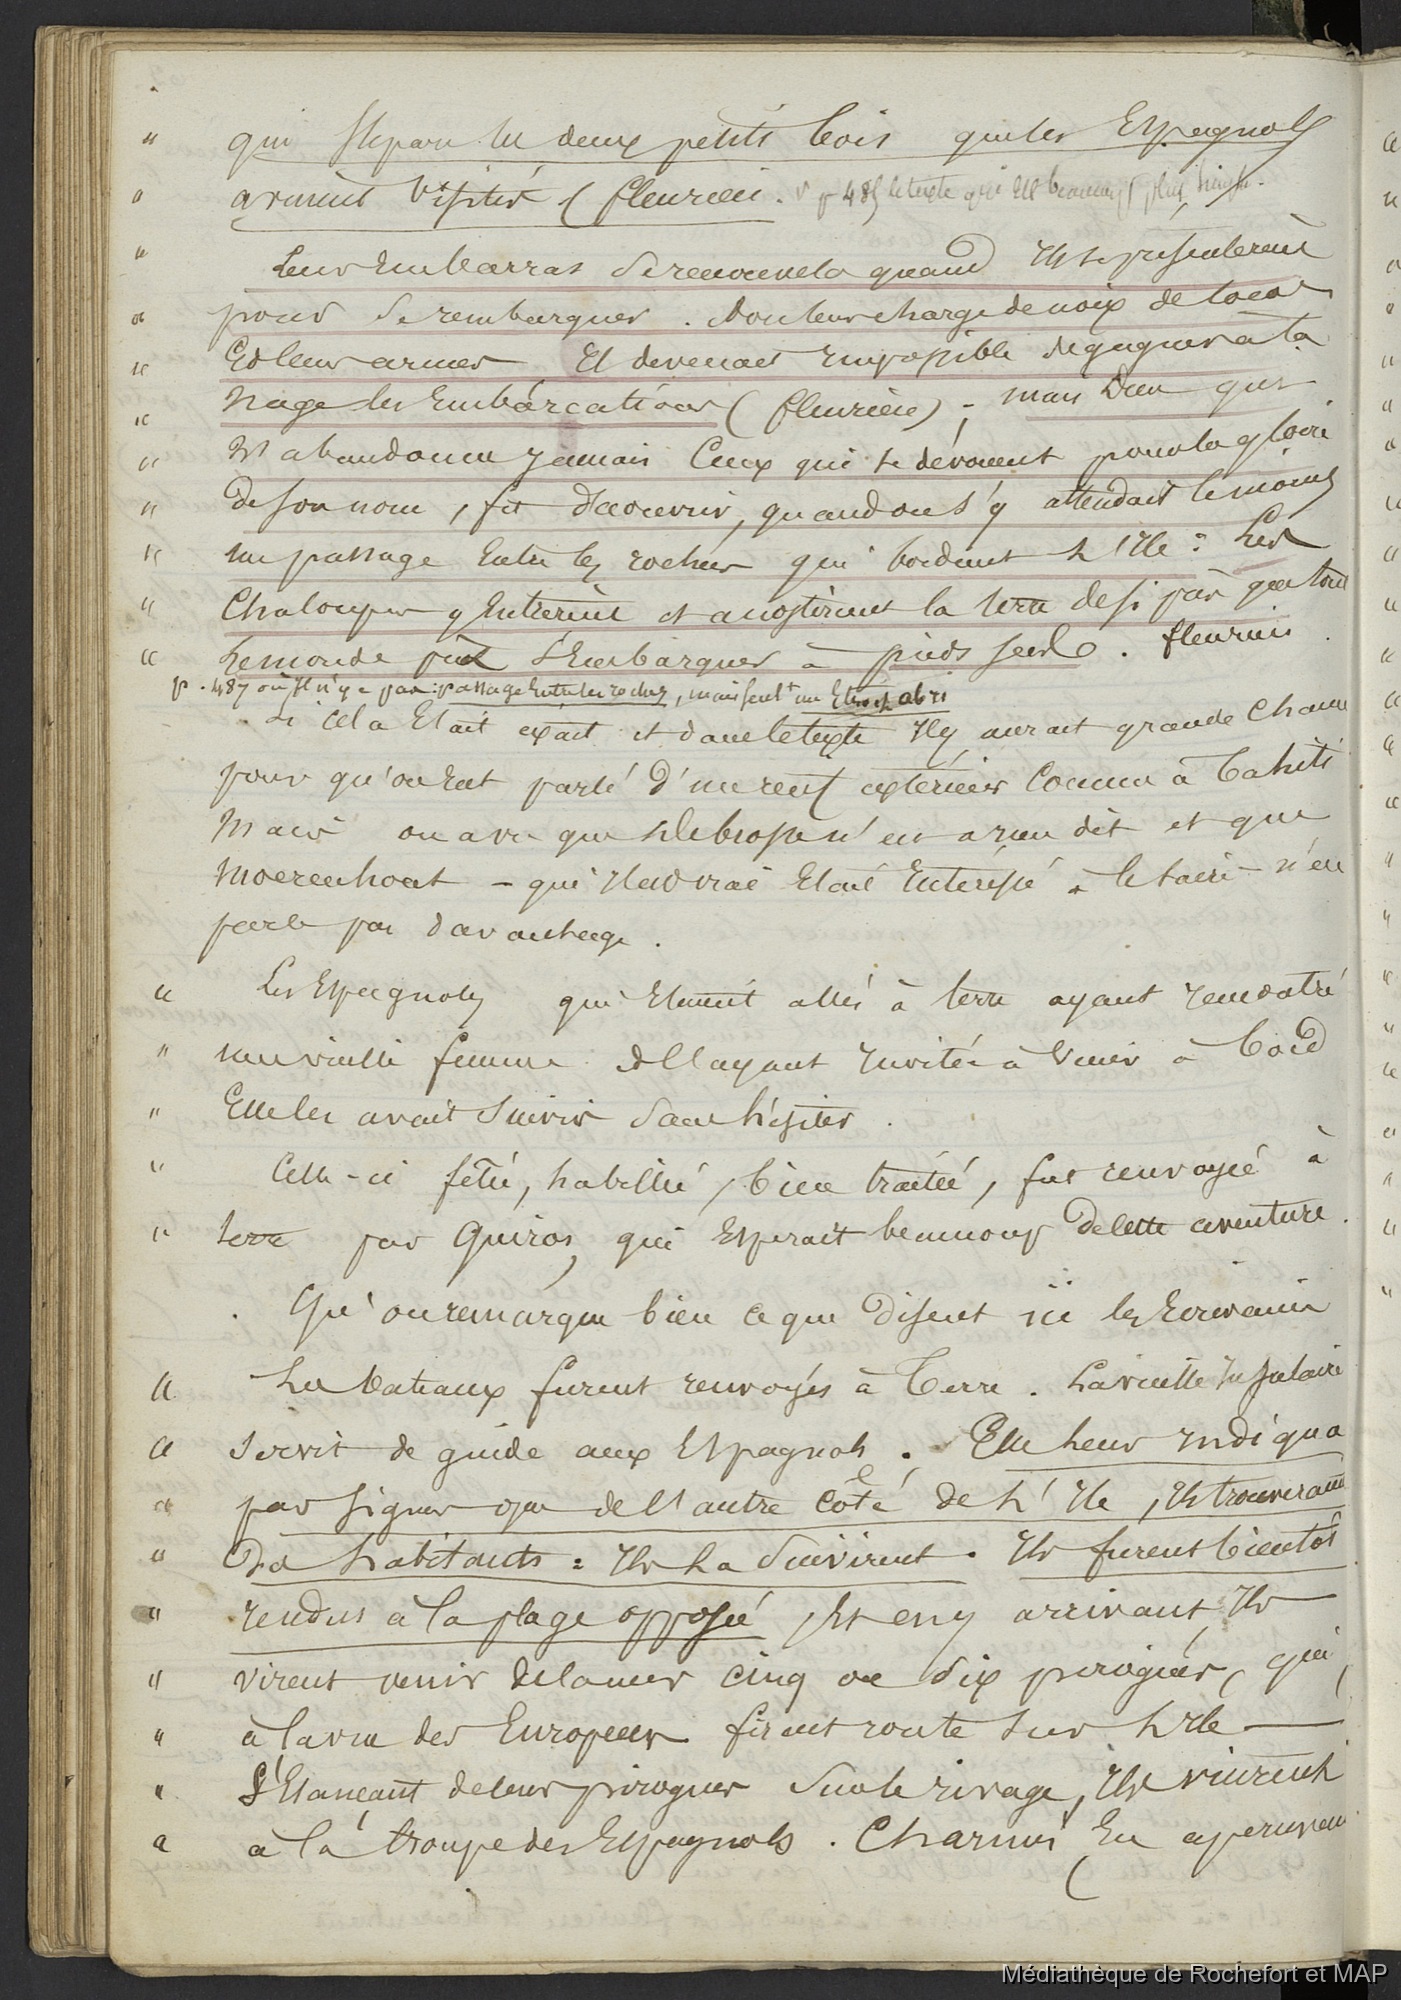 " qui sépare les deux petits bois que les Espagnols
" avaient visités ( fleurieu . v p 485 le texte qui est beaucoup plus simple.
" Leur Embarras se renouvela quand Ils se présentèrent
" pour se rembarquer . dans leur charge de noix de cocos
" Et leurs armes Il devenait impossible de gagner à la
" nage les Embarcations ( fleurieu ) ; mais Dieu qui
" n'abandonne jamais Ceux qui se dévouent pour la gloire
" de son nom , fit découvrir, quand on s'y attendait le moins
" un passage Entre les rochers qui bordent l'Ile : Les
" Chaloupes y Entrèrent et accostèrent la terre de si près que tout
" le monde put s'Embarquer à pieds secs . fleurieu .
p . 487 où Il n'y a pas : passage Entre les rochers , mais seult un Etroit abri
Si cela Etait exact et dans le texte Il y aurait grande chance
pour qu'on Eut parlé d'un récif extérieur comme à Tahiti
Mais on a vu que Debrosse n'en a rien dit et que
Moerenhout – qui Il est vrai Etait Intéressé à le taire n'en
parle pas davantage .
" Les Espagnols qui Etaient allés à terre ayant rencontré
" une vieille femme et l'ayant Invitée à Venir à bord
" Elle les avait suivis sans hésiter .
" Celle-ci fêtée, habillée, bien traitée, fut renvoyée à
" terre par Quiros, qui Espérait beaucoup de cette aventure .
Qu'on remarque bien ce que disent ici les Ecrivains
" Les bateaux furent renvoyés à Terre . La vieille Insulaire
" servit de guide aux Espagnols . Elle leur Indiqua
" par signes que de l'autre Côté de l'Ile , Ils trouveraient
" Des habitants : Ils la suivirent . Ils furent bientôt
" rendus à la plage opposée , Et en y arrivant Ils
" virent venir de la mer cinq ou dix pirogues, qui,
" à la vue des Européens firent route sur l'Ile —
" S'Elançant de leurs pirogues sur le rivage, Ils vinrent
" à la troupe des Espagnols . Charmés En apercevant
Médiathèque de Rochefort et MAP